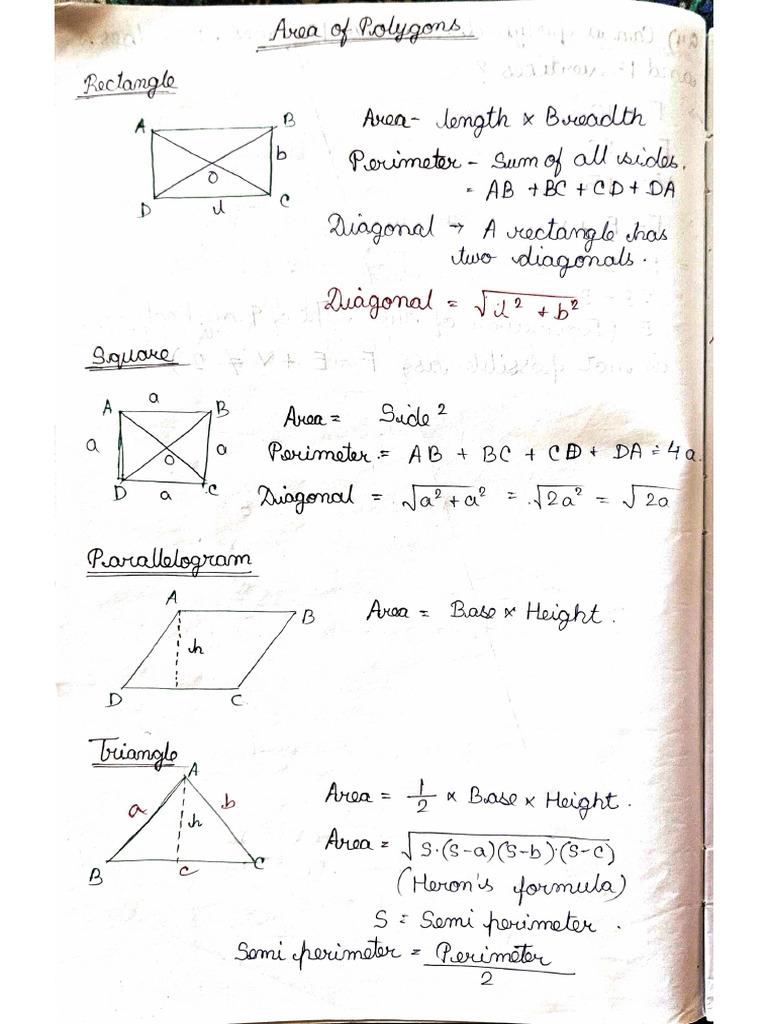 Area of Polygons
Rectangle
A B
b
O
D l C
Area - length × Breadth
Perimeter - Sum of all sides.
= AB + BC + CD + DA
Diagonal → A rectangle has
two diagonals.
Diagonal = √l² + b²
Square
a
A B
a a
O
D a C
Area = Side²
Perimeter = AB + BC + CD + DA = 4a.
Diagonal = √a² + a² = √2a² = √2a
Parallelogram
A
B
h
D C
Area = Base × Height.
Triangle
A
a b
h
B c C
Area = 1/2 × Base × Height.
Area = √S·(S-a)(S-b)·(S-c)
(Heron's formula)
S = Semi perimeter.
Semi perimeter = Perimeter
2